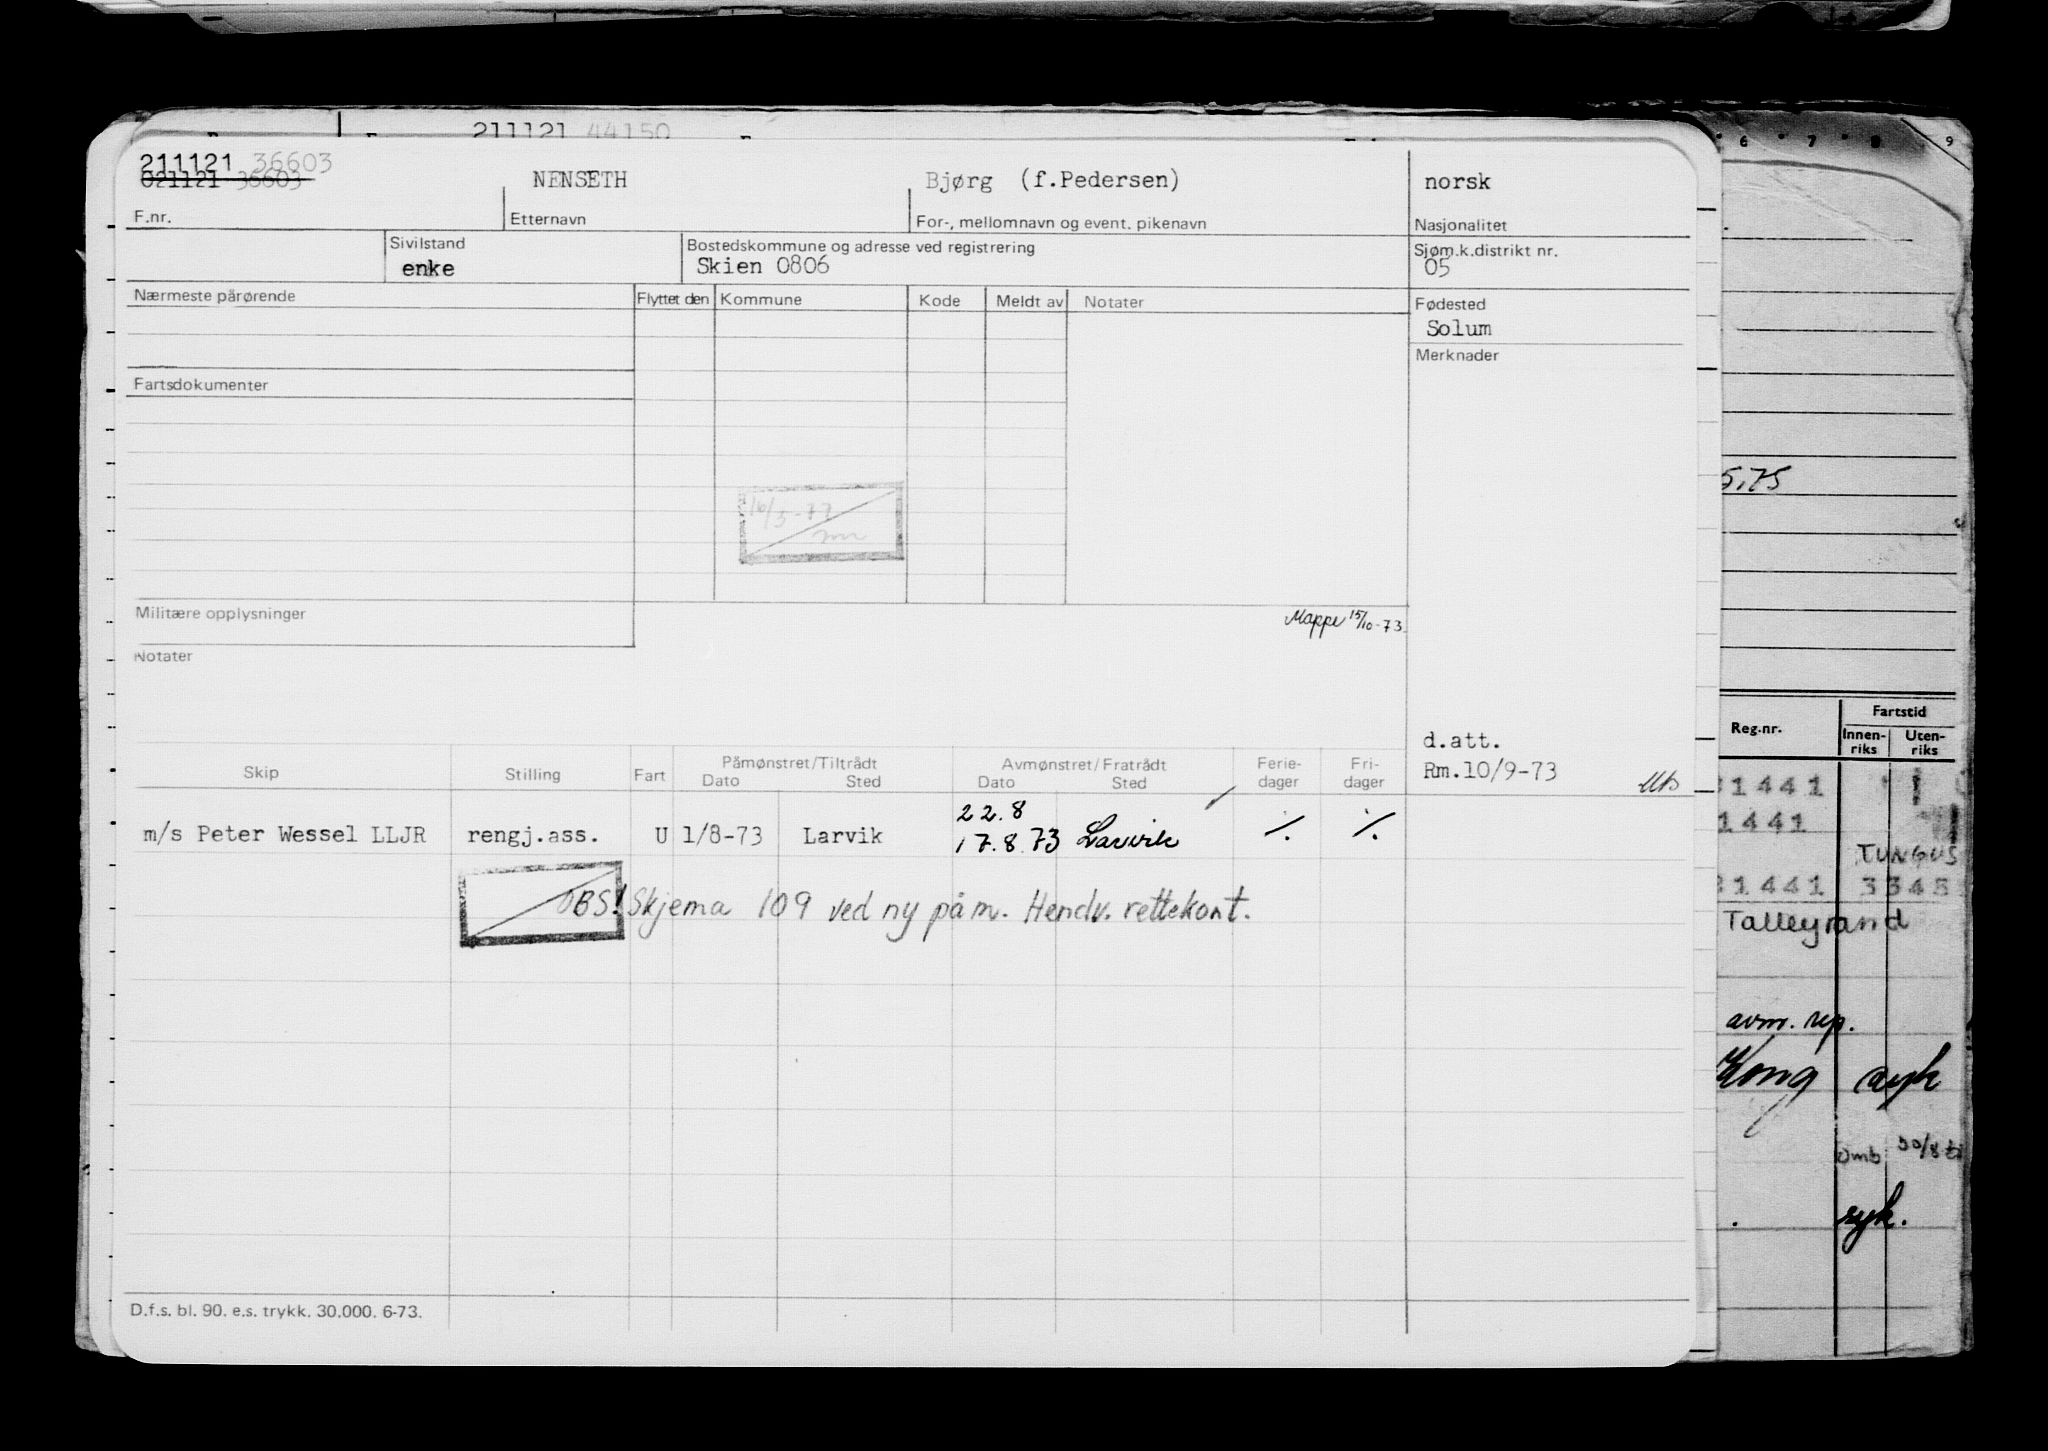 211121 44150
211121 36603
021121 36603
NENSETH
Bjørg (f.Pedersen)
norsk
F.nr.
Etternavn
For-, mellomnavn og event. pikenavn
Nasjonalitet
Sivilstand
enke
Bostedskommune og adresse ved registrering
Skien 0806
Sjøm.k.distrikt nr.
05
Nærmeste pårørende
Flyttet den
Kommune
Kode
Meldt av
Notater
Fødested
Solum
Merknader
Fartsdokumenter
16/5-77
Militære opplysninger
Mappe 15/10-73
Notater
d.att.
Rm.10/9-73
Skip
Stilling
Fart
Påmønstret/Tiltrådt
Dato
Sted
Avmønstret/Fratrådt
Dato
Sted
Ferie-
dager
Fri-
dager
22.8
m/s Peter Wessel LLJR rengj.ass. U 1/8-73 Larvik 17.8.73 Larvik ·/· ·/·
OBS! Skjema 109 ved ny påm. Henv. rettekont.
D.f.s. bl. 90. e.s. trykk. 30.000. 6-73.
6 7 8 9
5.75
Reg.nr.
Fartstid
Innen-
riks
Uten-
riks
1441
1441
TUNGUS
1441 3345
Talleyrand
avm. rep.
Kong syk
omb. 30/8
syk.